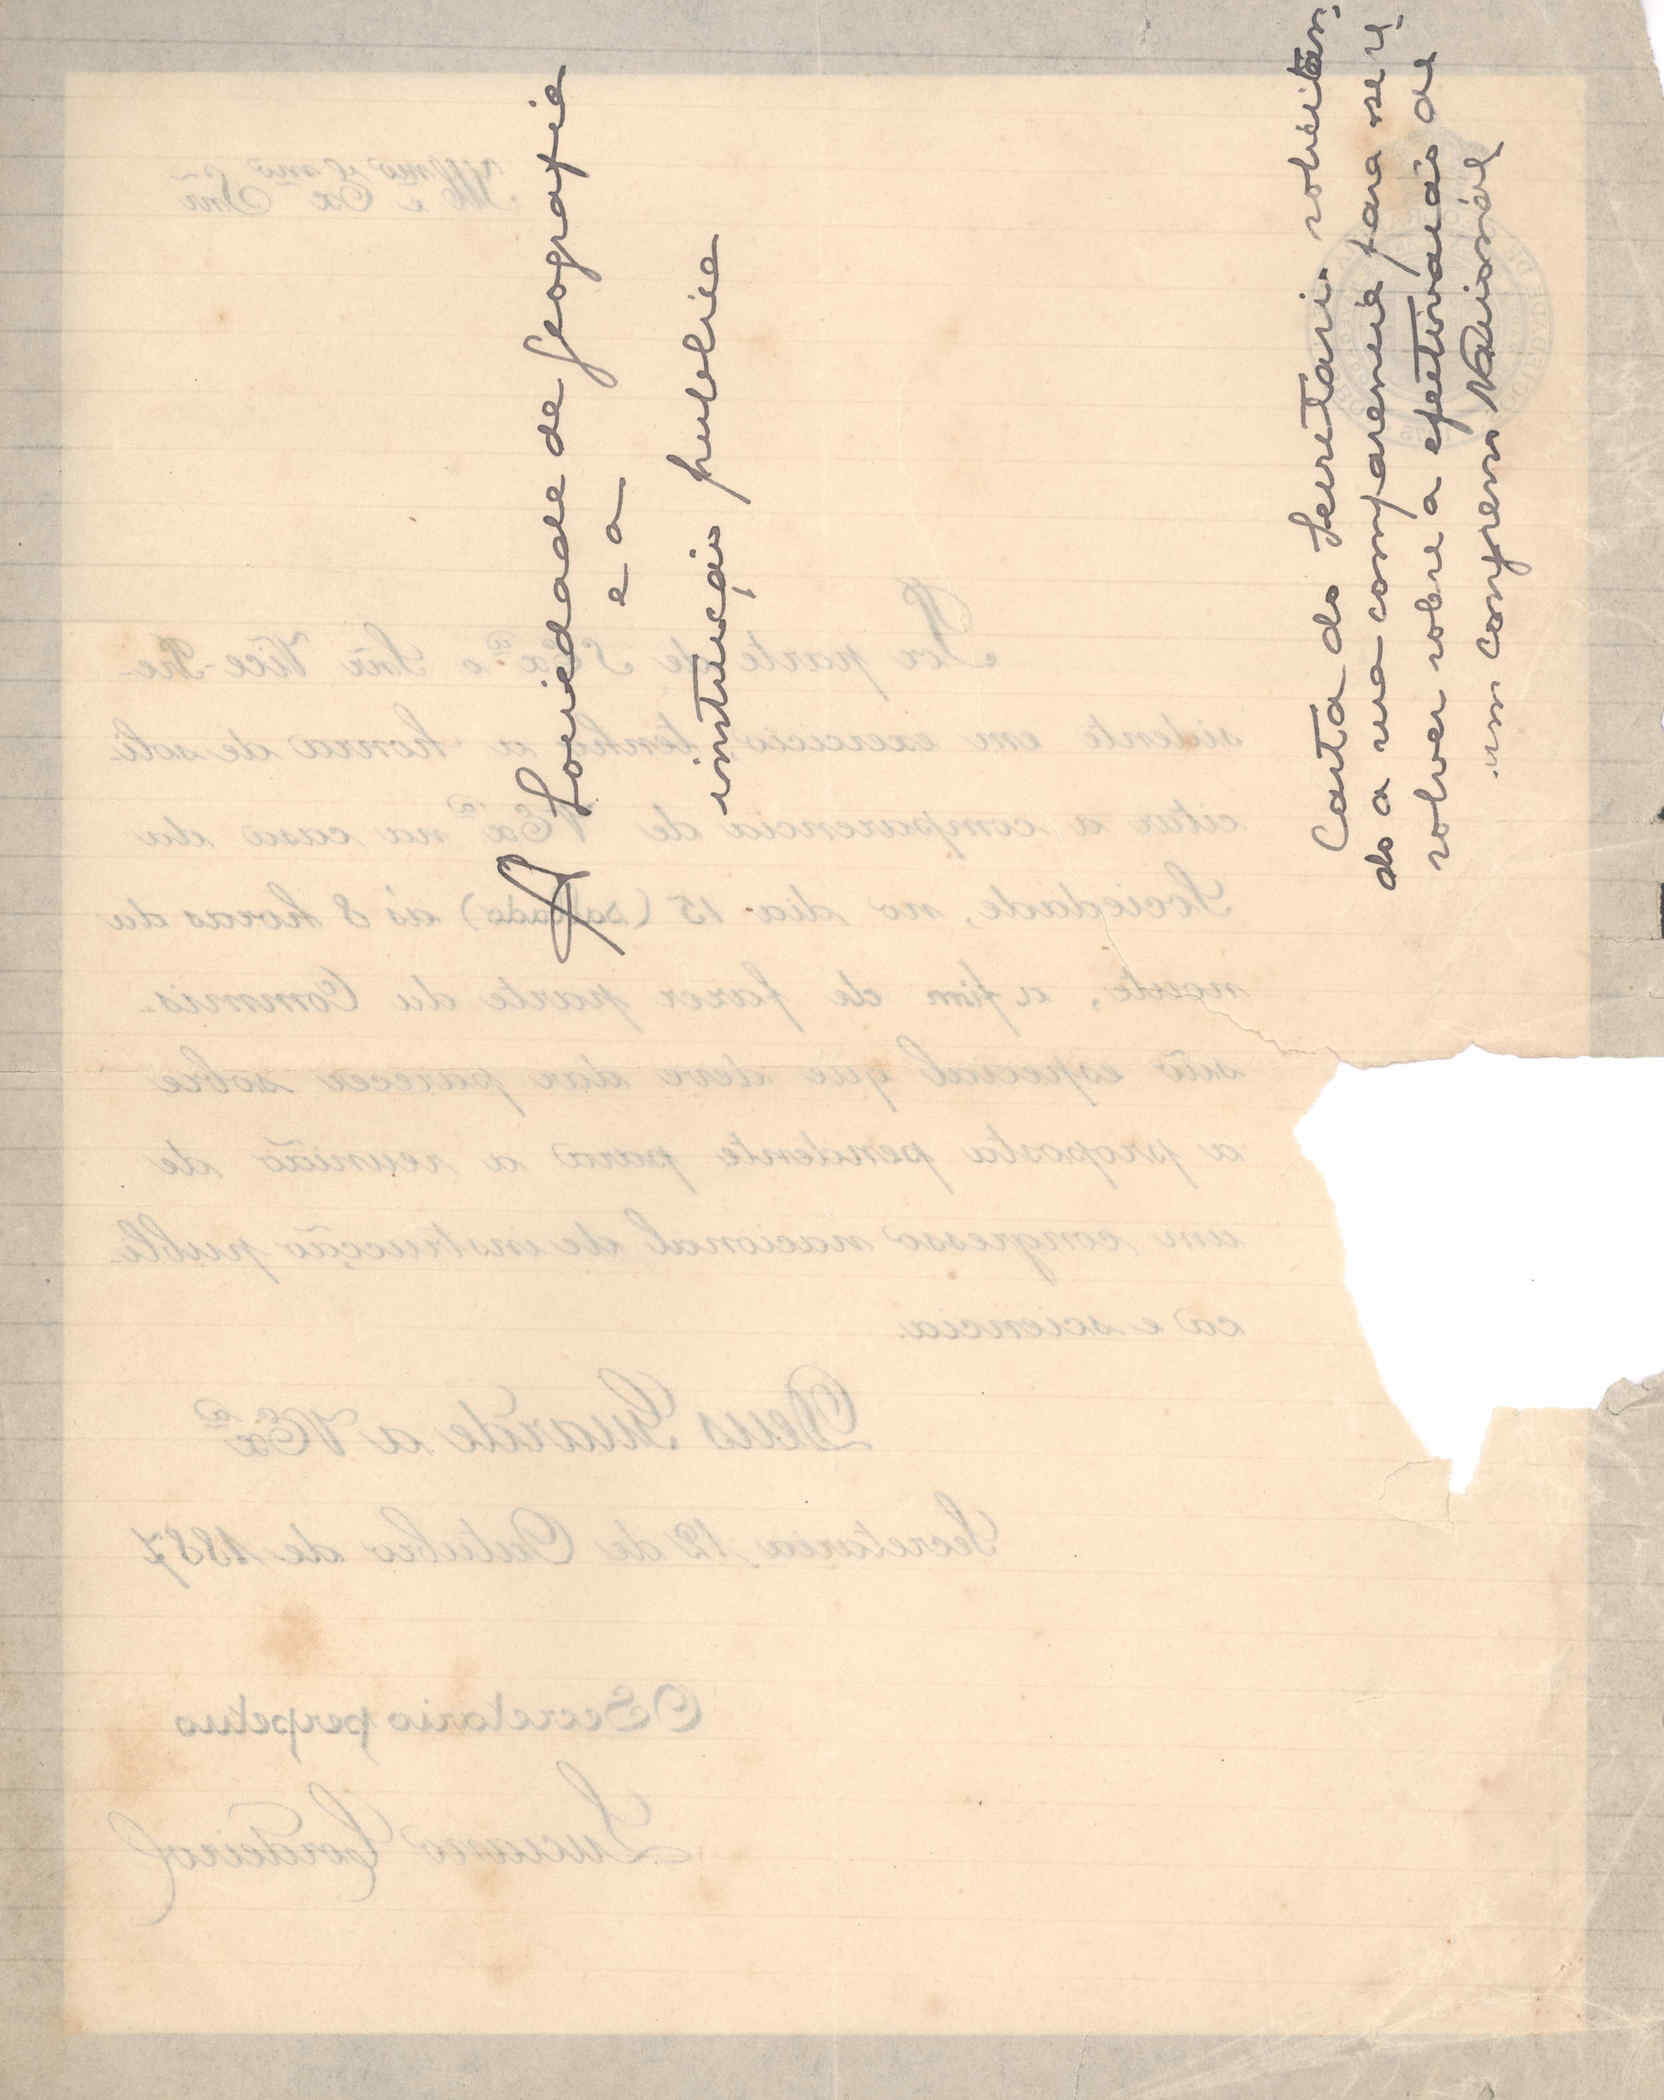 A Sociedade de Geografia
e a
instrução publica
Carta do Secretario solicitan-
do a sua comparencia para se re-
solver sobre a efectivação de
um congresso Nacional
Illmo e Exmo Snr
Por parte de S Exª o Snr Vice-Pre-
sidente em exercicio tenho a honra de soli-
citar a comparencia de V Exª na casa da
Sociedade, no dia 15 (sabado) ás 8 horas da
noute, a fim de fazer parte da Commis-
são especial que deve dar parecer sobre
a proposta pendente para a reunião de
um congresso nacional de instrucção publi-
ca e sciencia.
Deus Guarde a V Exª
Secretaria, 12 de Outubro de 1887
O Secretario perpetuo
Luciano Cordeiro